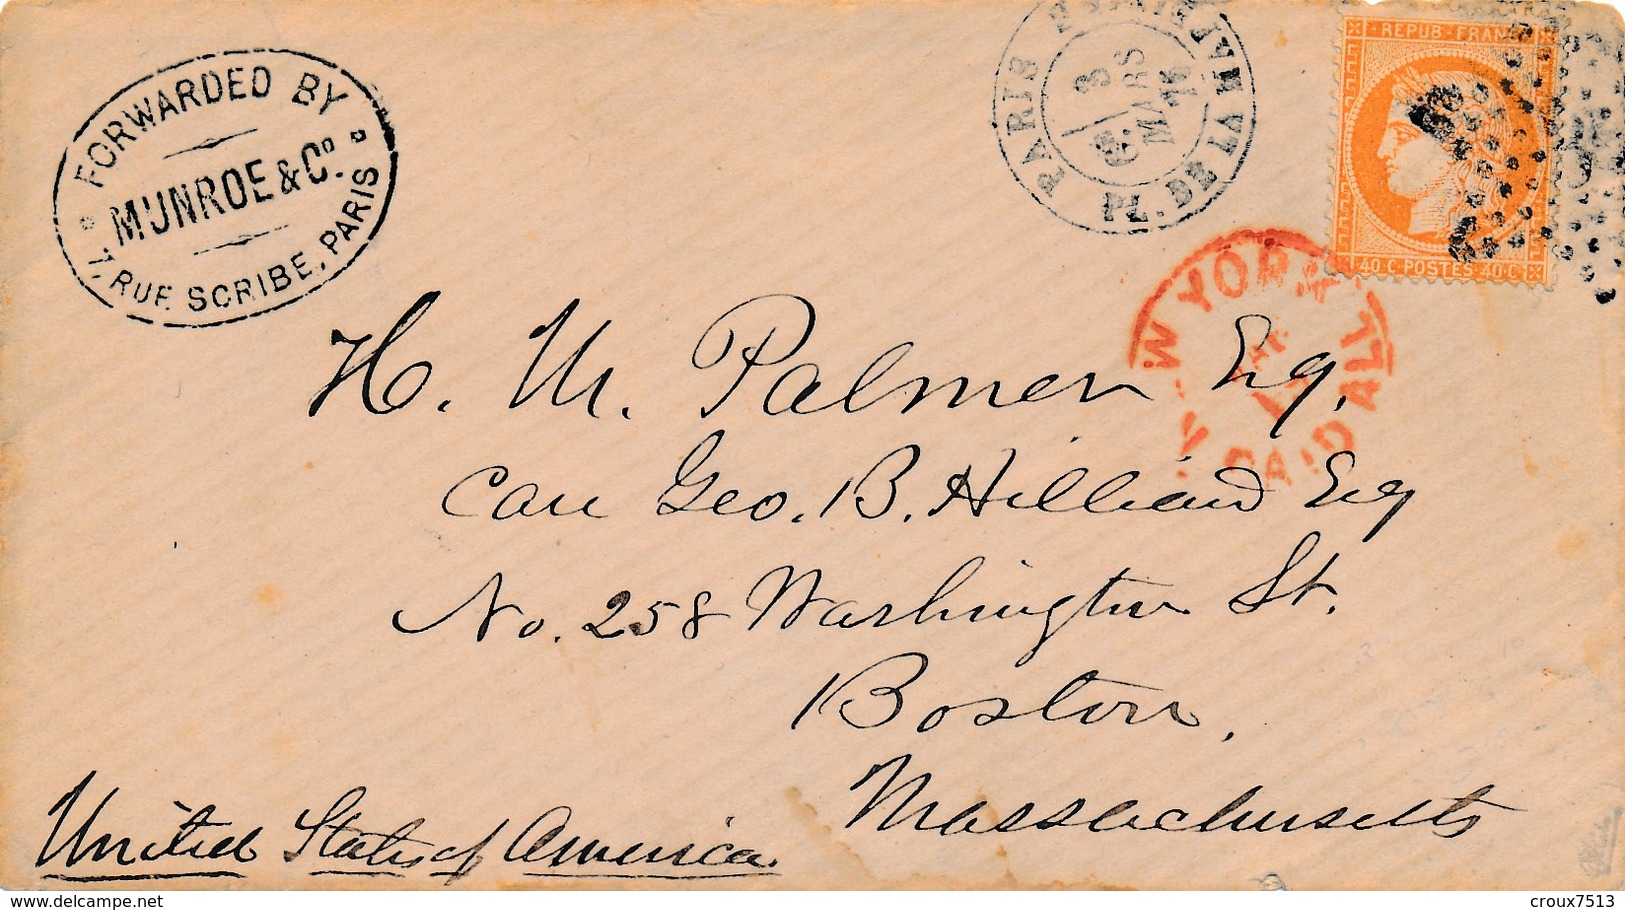 FORWARDED BY
MUNROE & Co.
7, RUE SCRIBE, PARIS
PARIS
PL. DE LA MADELEINE
3
MARS
REPUB. FRANC
40 C POSTES 40 C
NEW YORK
PAID ALL
H. M. Palmer Esq.
Care Geo. B. Hilliard Esq
No. 258 Washington St.
Boston,
Massachusetts
United States of America.
www.delcampe.net
croux7513